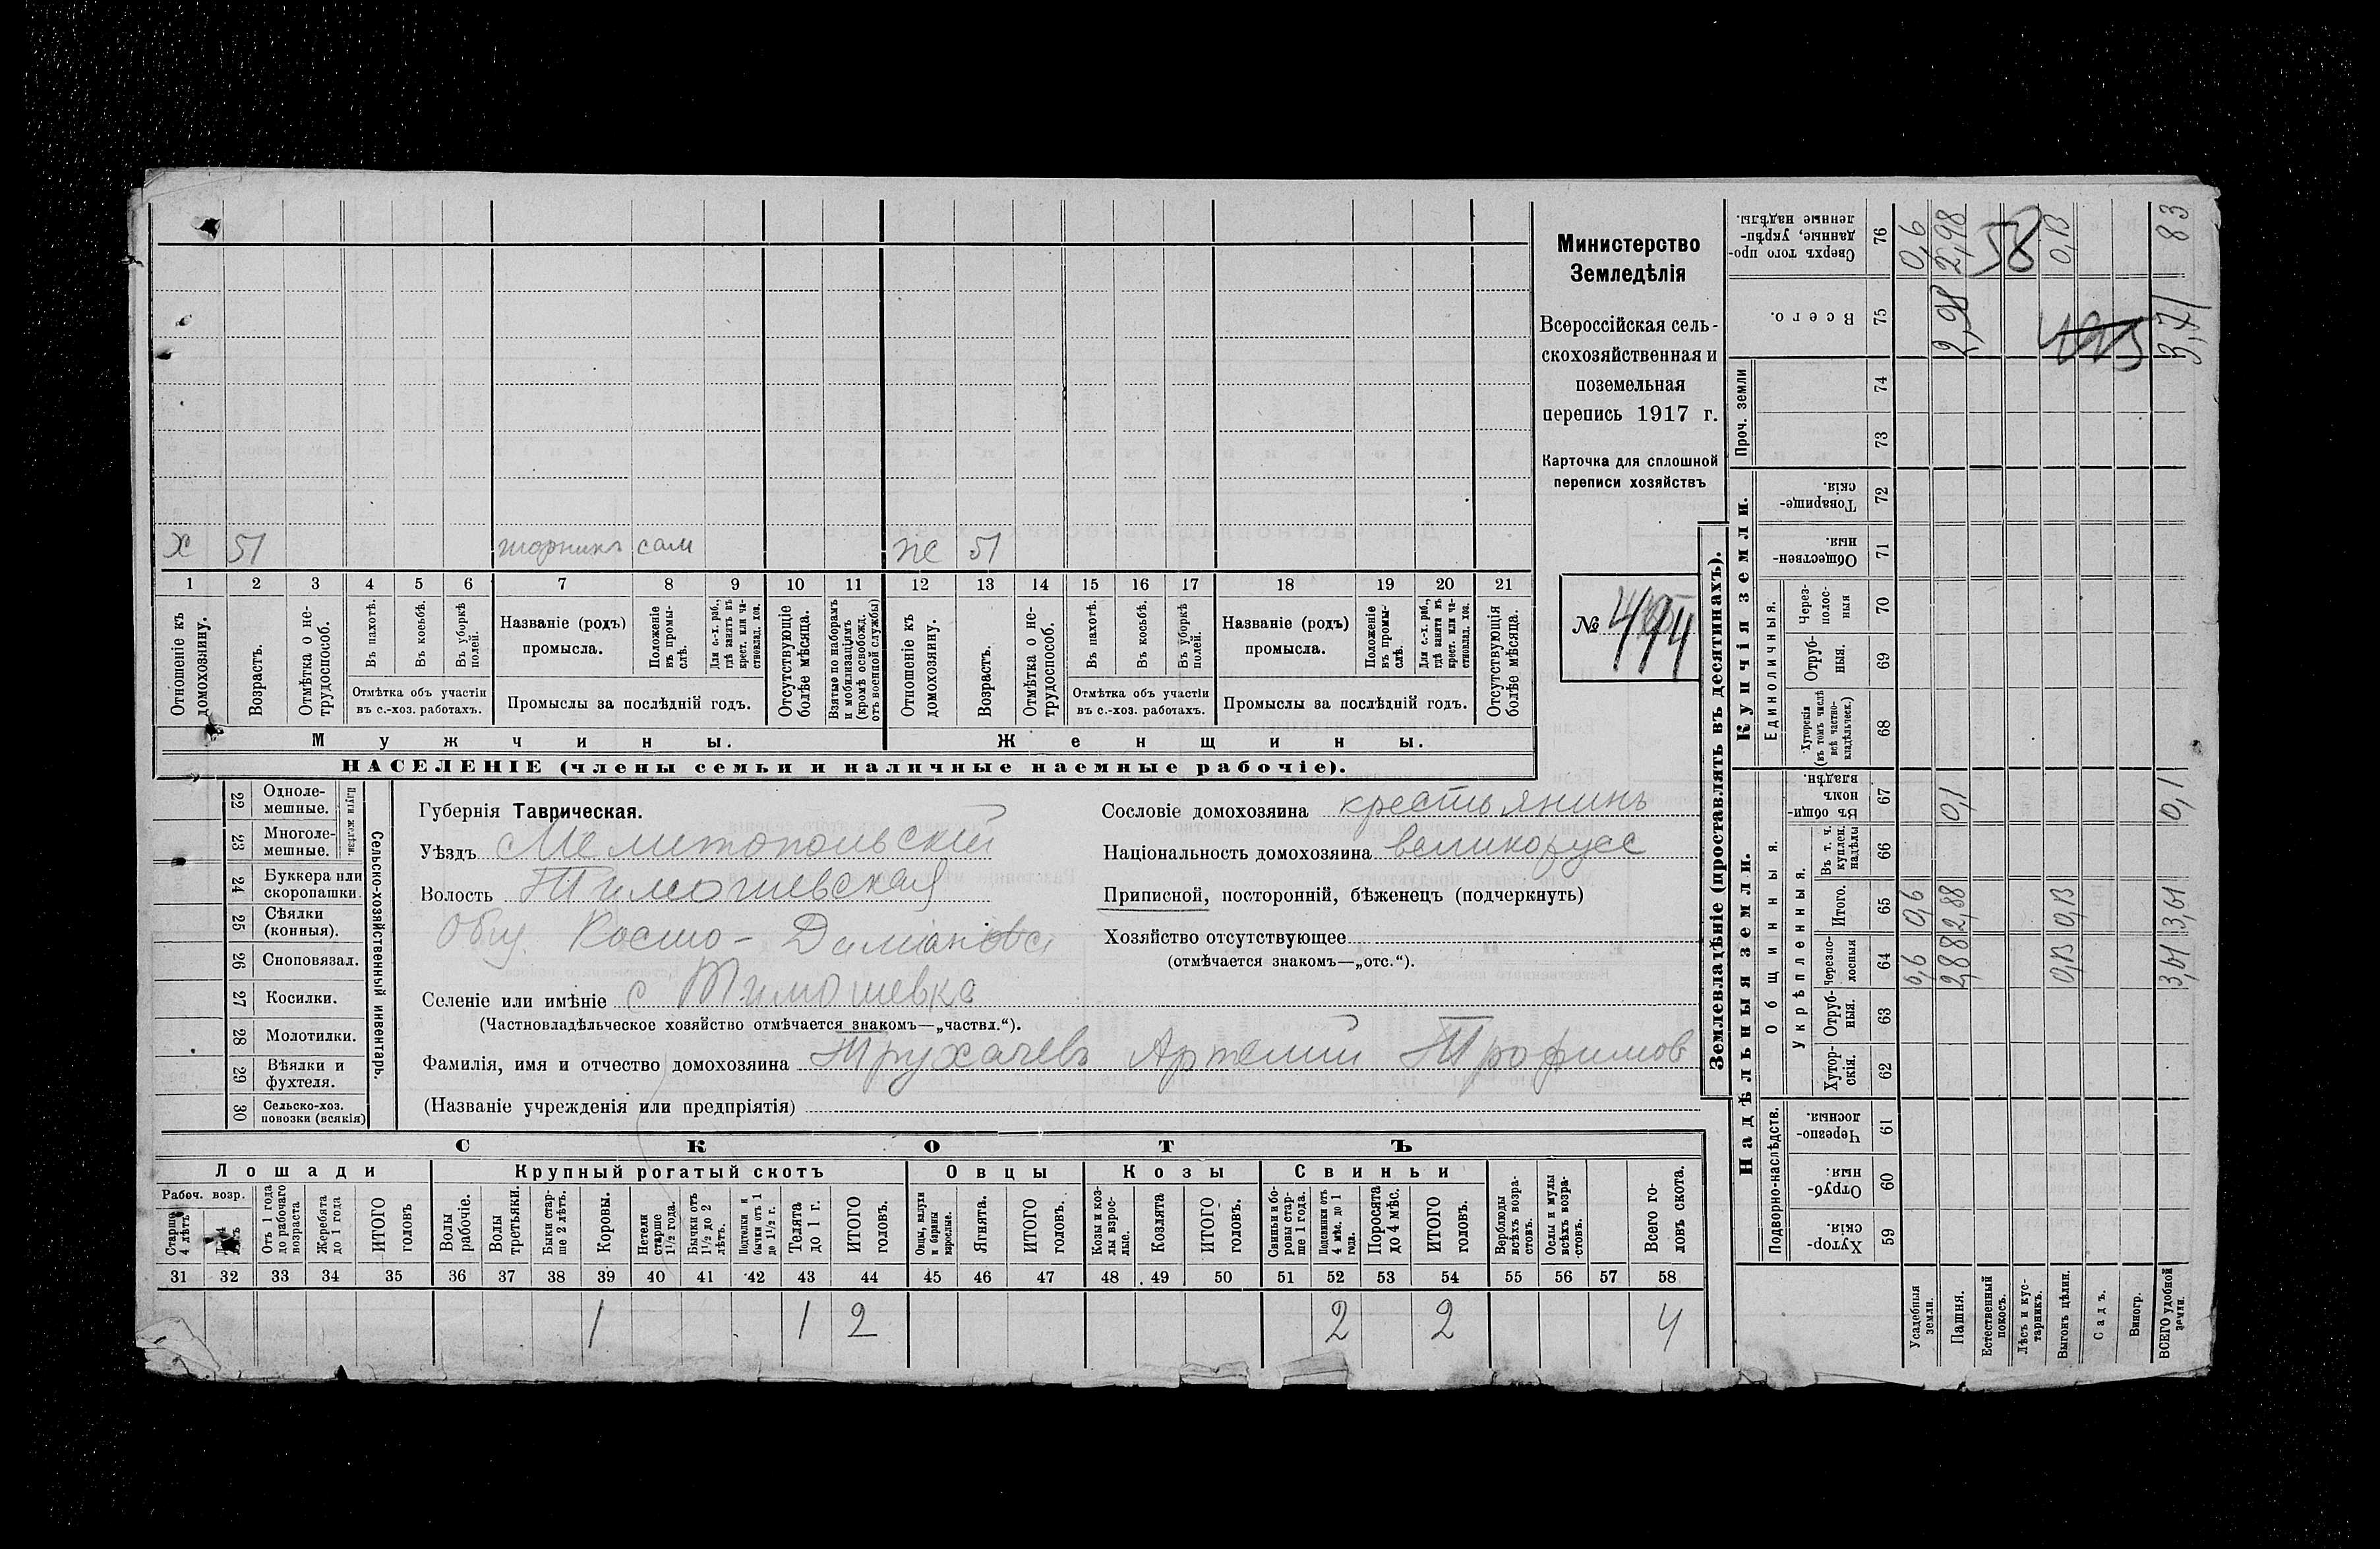 х 51 шорникъ сам же 51
1 2 3 4 5 6 7 8 9 10 11 12 13 14 15 16 17 18 19 20 21
Отношеніе къ домохозяину.
Возрастъ.
Отмѣтка о не-
трудоспособ.
Въ пахотѣ.
Въ косьбѣ.
Въ уборкѣ
полей.
Отмѣтка объ участіи
въ с.-хоз. работахъ.
Названіе (родъ)
промысла.
Положеніе
въ промы-
слѣ.
Для с.-х. раб.,
гдѣ занятъ въ
крест. или ча-
стновлад. хоз.
Промыслы за послѣдній годъ.
Отсутствующіе
болѣе мѣсяца.
Взятые по наборамъ
и мобилизаціямъ
(кромѣ освобожд.
отъ военной службы)
Отношеніе къ
домохозяину.
Возрастъ.
Отмѣтка о не-
трудоспособ.
Въ пахотѣ.
Въ косьбѣ.
Въ уборкѣ
полей.
Отмѣтка объ участіи
въ с.-хоз. работахъ.
Названіе (родъ)
промысла.
Положеніе
въ промы-
слѣ.
Для с.-х. раб.,
гдѣ занята въ
крест. или ча-
стновлад. хоз.
Промыслы за послѣдній годъ.
Отсутствующія
болѣе мѣсяца.
Мужчины.
Женщины.
НАСЕЛЕНІЕ (члены семьи и наличные наемные рабочіе).
Министерство
Земледѣлія
Всероссійская сель-
скохозяйственная и
поземельная
перепись 1917 г.
Карточка для сплошной
переписи хозяйствъ
№ 444
22 Одноле-
мешные.
23 Многоле-
мешные.
Плуги желѣзн.
24 Буккера или
скоропашки.
25 Сѣялки
(конныя).
26 Сноповязал.
27 Косилки.
28 Молотилки.
29 Вѣялки и
фухтеля.
30 Сельско-хоз.
повозки (всякія)
Сельско-хозяйственный инвентарь.
Губернія Таврическая.
Уѣздъ Мелитопольскій
Волость Тимошевская
Общ. Космо-Даміанова
Селеніе или имѣніе с Тимошевка
(Частновладѣльческое хозяйство отмѣчается знакомъ—„частвл.“).
Фамилія, имя и отчество домохозяина Трухачевъ Артемій Трофимов
(Названіе учрежденія или предпріятія)
Сословіе домохозяина крестьянинъ
Національность домохозяина великорусс
Приписной, посторонній, бѣженецъ (подчеркнуть)
Хозяйство отсутствующее
(отмѣчается знакомъ—„отс.“).
СКОТЪ
Лошади
Крупный рогатый скотъ
Овцы
Козы
Свиньи
Рабоч. возр.
Старше
4 лѣтъ
Отъ 1 года
до рабочаго
возраста
Жеребята
до 1 года
ИТОГО
головъ
Волы
рабочіе.
Волы
третьяки.
Быки стар-
ше 2 лѣтъ.
Коровы.
Нетели
старше
1½ года.
Бычки отъ
1½ до 2
лѣтъ.
Подтелки и
бычки отъ 1
до 1½ г.
Телята
до 1 г.
ИТОГО
головъ.
Овцы, валухи
и бараны
взрослые.
Ягнята.
ИТОГО
головъ.
Козы и коз-
лы взрос-
лые.
Козлята
ИТОГО
головъ.
Свиньи и бо-
ровы стар-
ше 1 года.
Подсвинки отъ
4 мѣс. до 1
года.
Поросята
до 4 мѣс.
ИТОГО
головъ.
Верблюды
всѣхъ возра-
стовъ.
Ослы и мулы
всѣхъ возра-
стовъ.
Всего го-
ловъ скота.
31 32 33 34 35 36 37 38 39 40 41 42 43 44 45 46 47 48 49 50 51 52 53 54 55 56 57 58
1 1 2 2 2 4
Землевладѣніе (проставлять въ десятинахъ).
Надѣльныя земли.
Купчія земли.
Проч. земли
Подворно-наслѣдств.
Общинныя.
Укрѣпленныя.
Единоличныя.
Сверхъ того про-
данные, укрѣп-
ленные надѣлы.
76 0,6 2,98 0,13 83
58
Всего.
75 2,98 3,71
74
73
Товарище-
скія.
72
Обществен-
ныя.
71
Через-
полос-
ныя
70
Отруб-
ныя.
69
Хуторскія
(въ томъ числѣ
всѣ частно-
владѣльческ.)
68
Въ общи-
номъ
владѣн.
67 0,1 0,1
Въ т. ч.
куплен.
надѣлы
66
Итого.
65 0,6 2,88 0,13 3,61
Черезпо-
лосныя
64 0,6 2,88 0,13 3,61
Отруб-
ныя.
63
Хутор-
скія.
62
Черезпо-
лосныя.
61
Отруб-
ныя.
60
Хутор-
скія.
59
Усадебныя
земли.
Пашня.
Естественный
покосъ.
Лѣсъ и кус-
тарникъ.
Выгонъ цѣлин.
Садъ.
Виногр.
ВСЕГО удобной
земли.